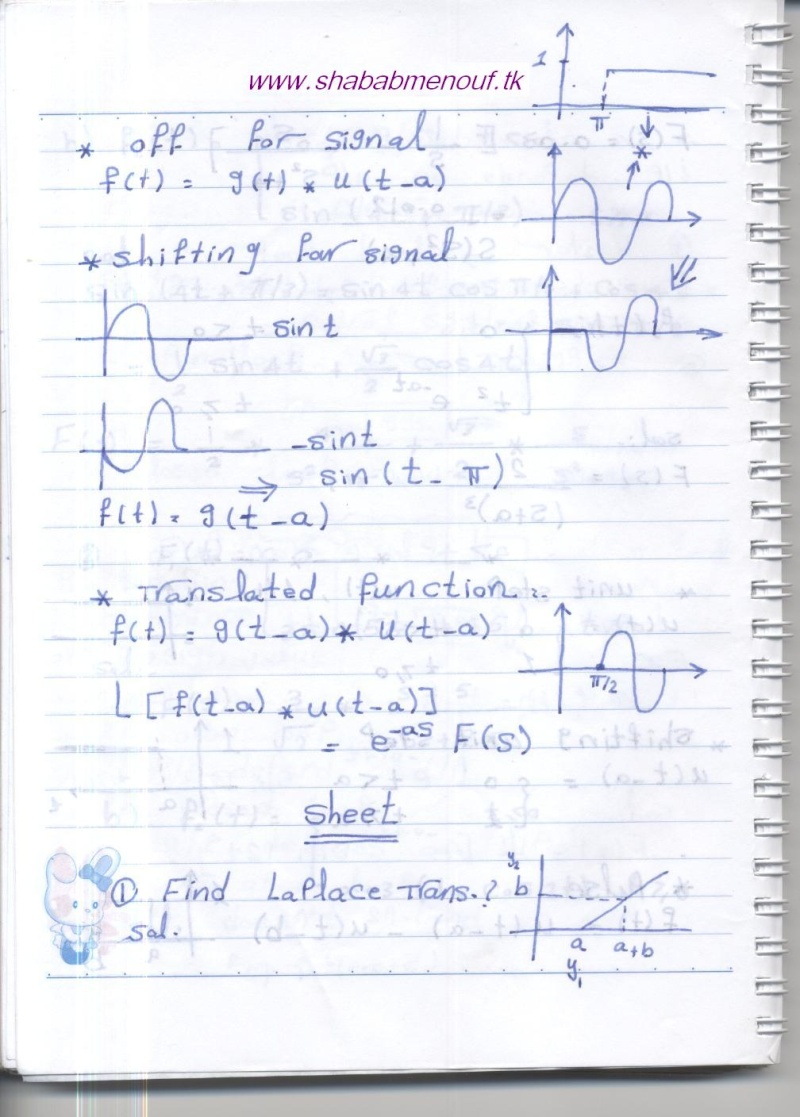 www.shababmenouf.tk
1
π
* off for signal
f(t) = g(t) * u(t-a)
*
* shifting for signal
sin t
-sint
⇒ sin(t-π)
f(t) = g(t-a)
* Translated function..
f(t) = g(t-a) * u(t-a)
π/2
L[f(t-a) * u(t-a)]
= e^-as F(s)
Sheet
① Find LaPlace Trans.?
y2
b
sol.
a
a+b
y1